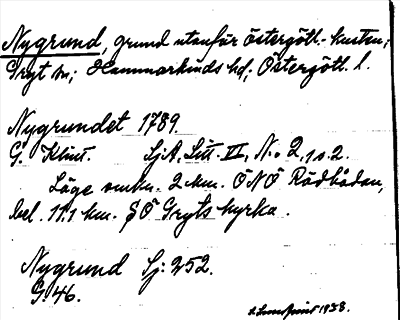 Nygrund, grund utanför Östergötl.-kusten;
Gryt sn; Hammarkinds hd; Östergötl. l.
Nygrundet 1789.
G. Klint. SjA, Litt. VI, N:o 2, s. 2.
Läge omkr. 2 km. ÖNÖ Rödbådan,
bel. 11.1 km. SÖ Gryts kyrka.
Nygrund Sj: 252.
G. 46.
1938.